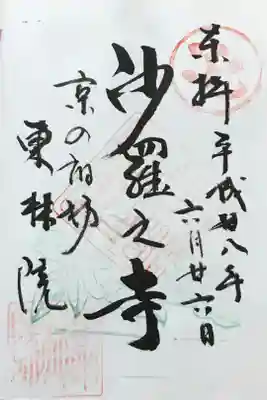 来拝 平成廿八年
六月廿六日
沙羅之寺
京の宿坊
東林院